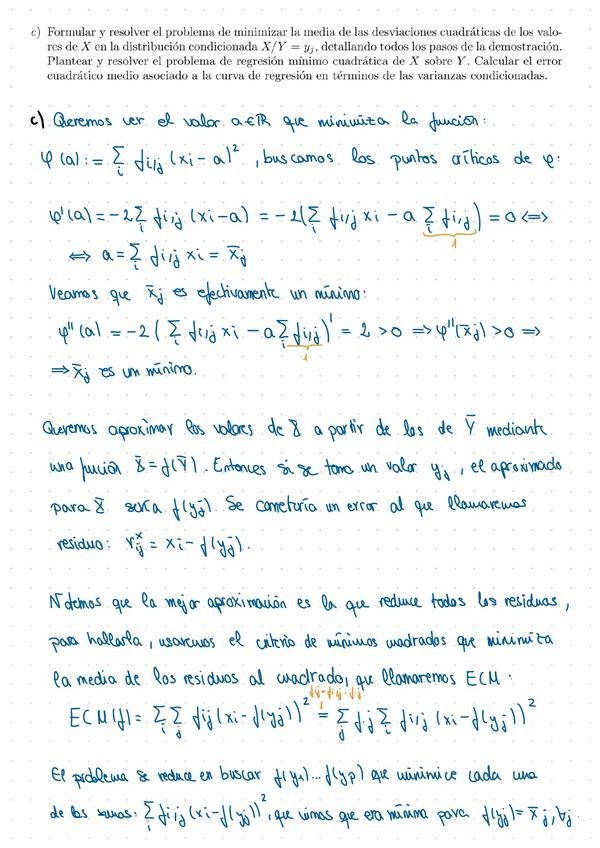 c) Formular y resolver el problema de minimizar la media de las desviaciones cuadráticas de los valo-
res de X en la distribución condicionada X/Y = y_j, detallando todos los pasos de la demostración.
Plantear y resolver el problema de regresión mínimo cuadrática de X sobre Y. Calcular el error
cuadrático medio asociado a la curva de regresión en términos de las varianzas condicionadas.
c) Queremos ver el valor a∈ℝ que minimiza la función:
φ(a) := Σ_i f_{i/j} (x_i − a)², buscamos los puntos críticos de φ:
φ'(a) = −2 Σ_i f_{i/j} (x_i − a) = −2(Σ_i f_{i/j} x_i − a Σ_i f_{i/j}) = 0 ⟺
1
⟺ a = Σ_i f_{i/j} x_i = x̄_j
Veamos que x̄_j es efectivamente un mínimo:
φ''(a) = −2 (Σ_i f_{i/j} x_i − a Σ_i f_{i/j})' = 2 > 0 ⟹ φ''(x̄_j) > 0 ⟹
1
⟹ x̄_j es un mínimo.
Queremos aproximar los valores de X a partir de los de Y mediante
una función X = f(Y). Entonces si se toma un valor y_j, el aproximado
para X sería f(y_j). Se cometería un error al que llamaremos
residuo: r_{ij}^x = x_i − f(y_j).
Notemos que la mejor aproximación es la que reduce todos los residuos,
para hallarla, usaremos el criterio de mínimos cuadrados que minimiza
la media de los residuos al cuadrado, que llamaremos ECM:
f_{ij} = f_{i/j} · f_{.j}
ECM(f) = Σ_i Σ_j f_{ij} (x_i − f(y_j))² = Σ_j f_{.j} Σ_i f_{i/j} (x_i − f(y_j))²
El problema se reduce en buscar f(y_1)...f(y_p) que minimice cada una
de las sumas: Σ_i f_{i/j} (x_i − f(y_j))², que vimos que era mínima para f(y_j) = x̄_j, ∀j.